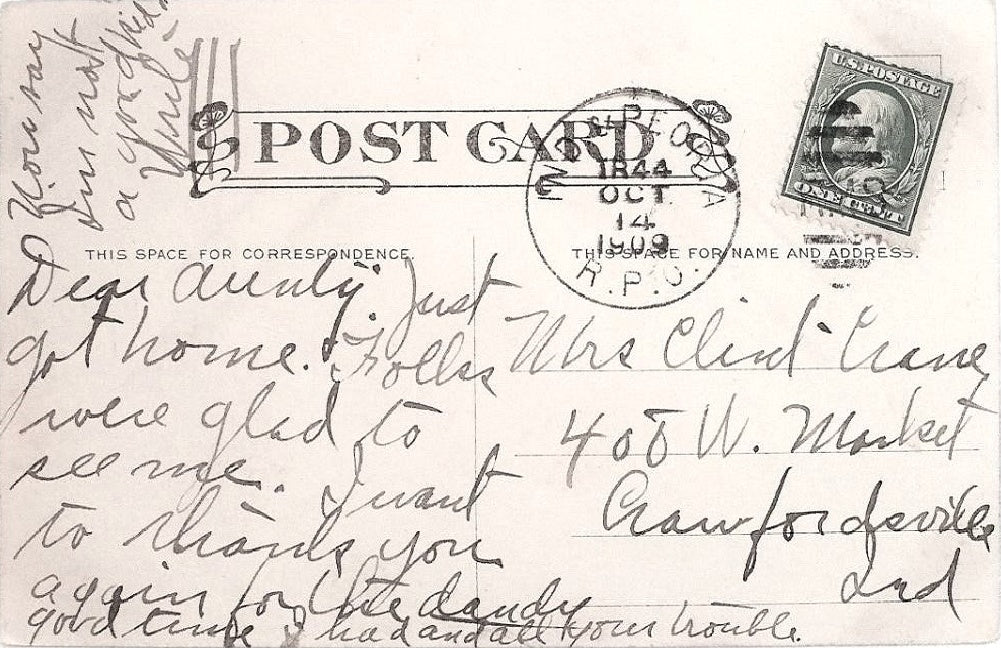 You say
I'm not
a good kid
Uncle
POST CARD
& PEORIA
1844
OCT
14
1909
R.P.O.
U.S. POSTAGE
ONE CENT
THIS SPACE FOR CORRESPONDENCE.
THIS SPACE FOR NAME AND ADDRESS.
Dear Aunty. Just
got home. Folks
were glad to
see me. I want
to thank you
again for the dandy
good time I had and all your trouble.
Mrs Clint Crane
408 W. Market
Crawfordsville
Ind